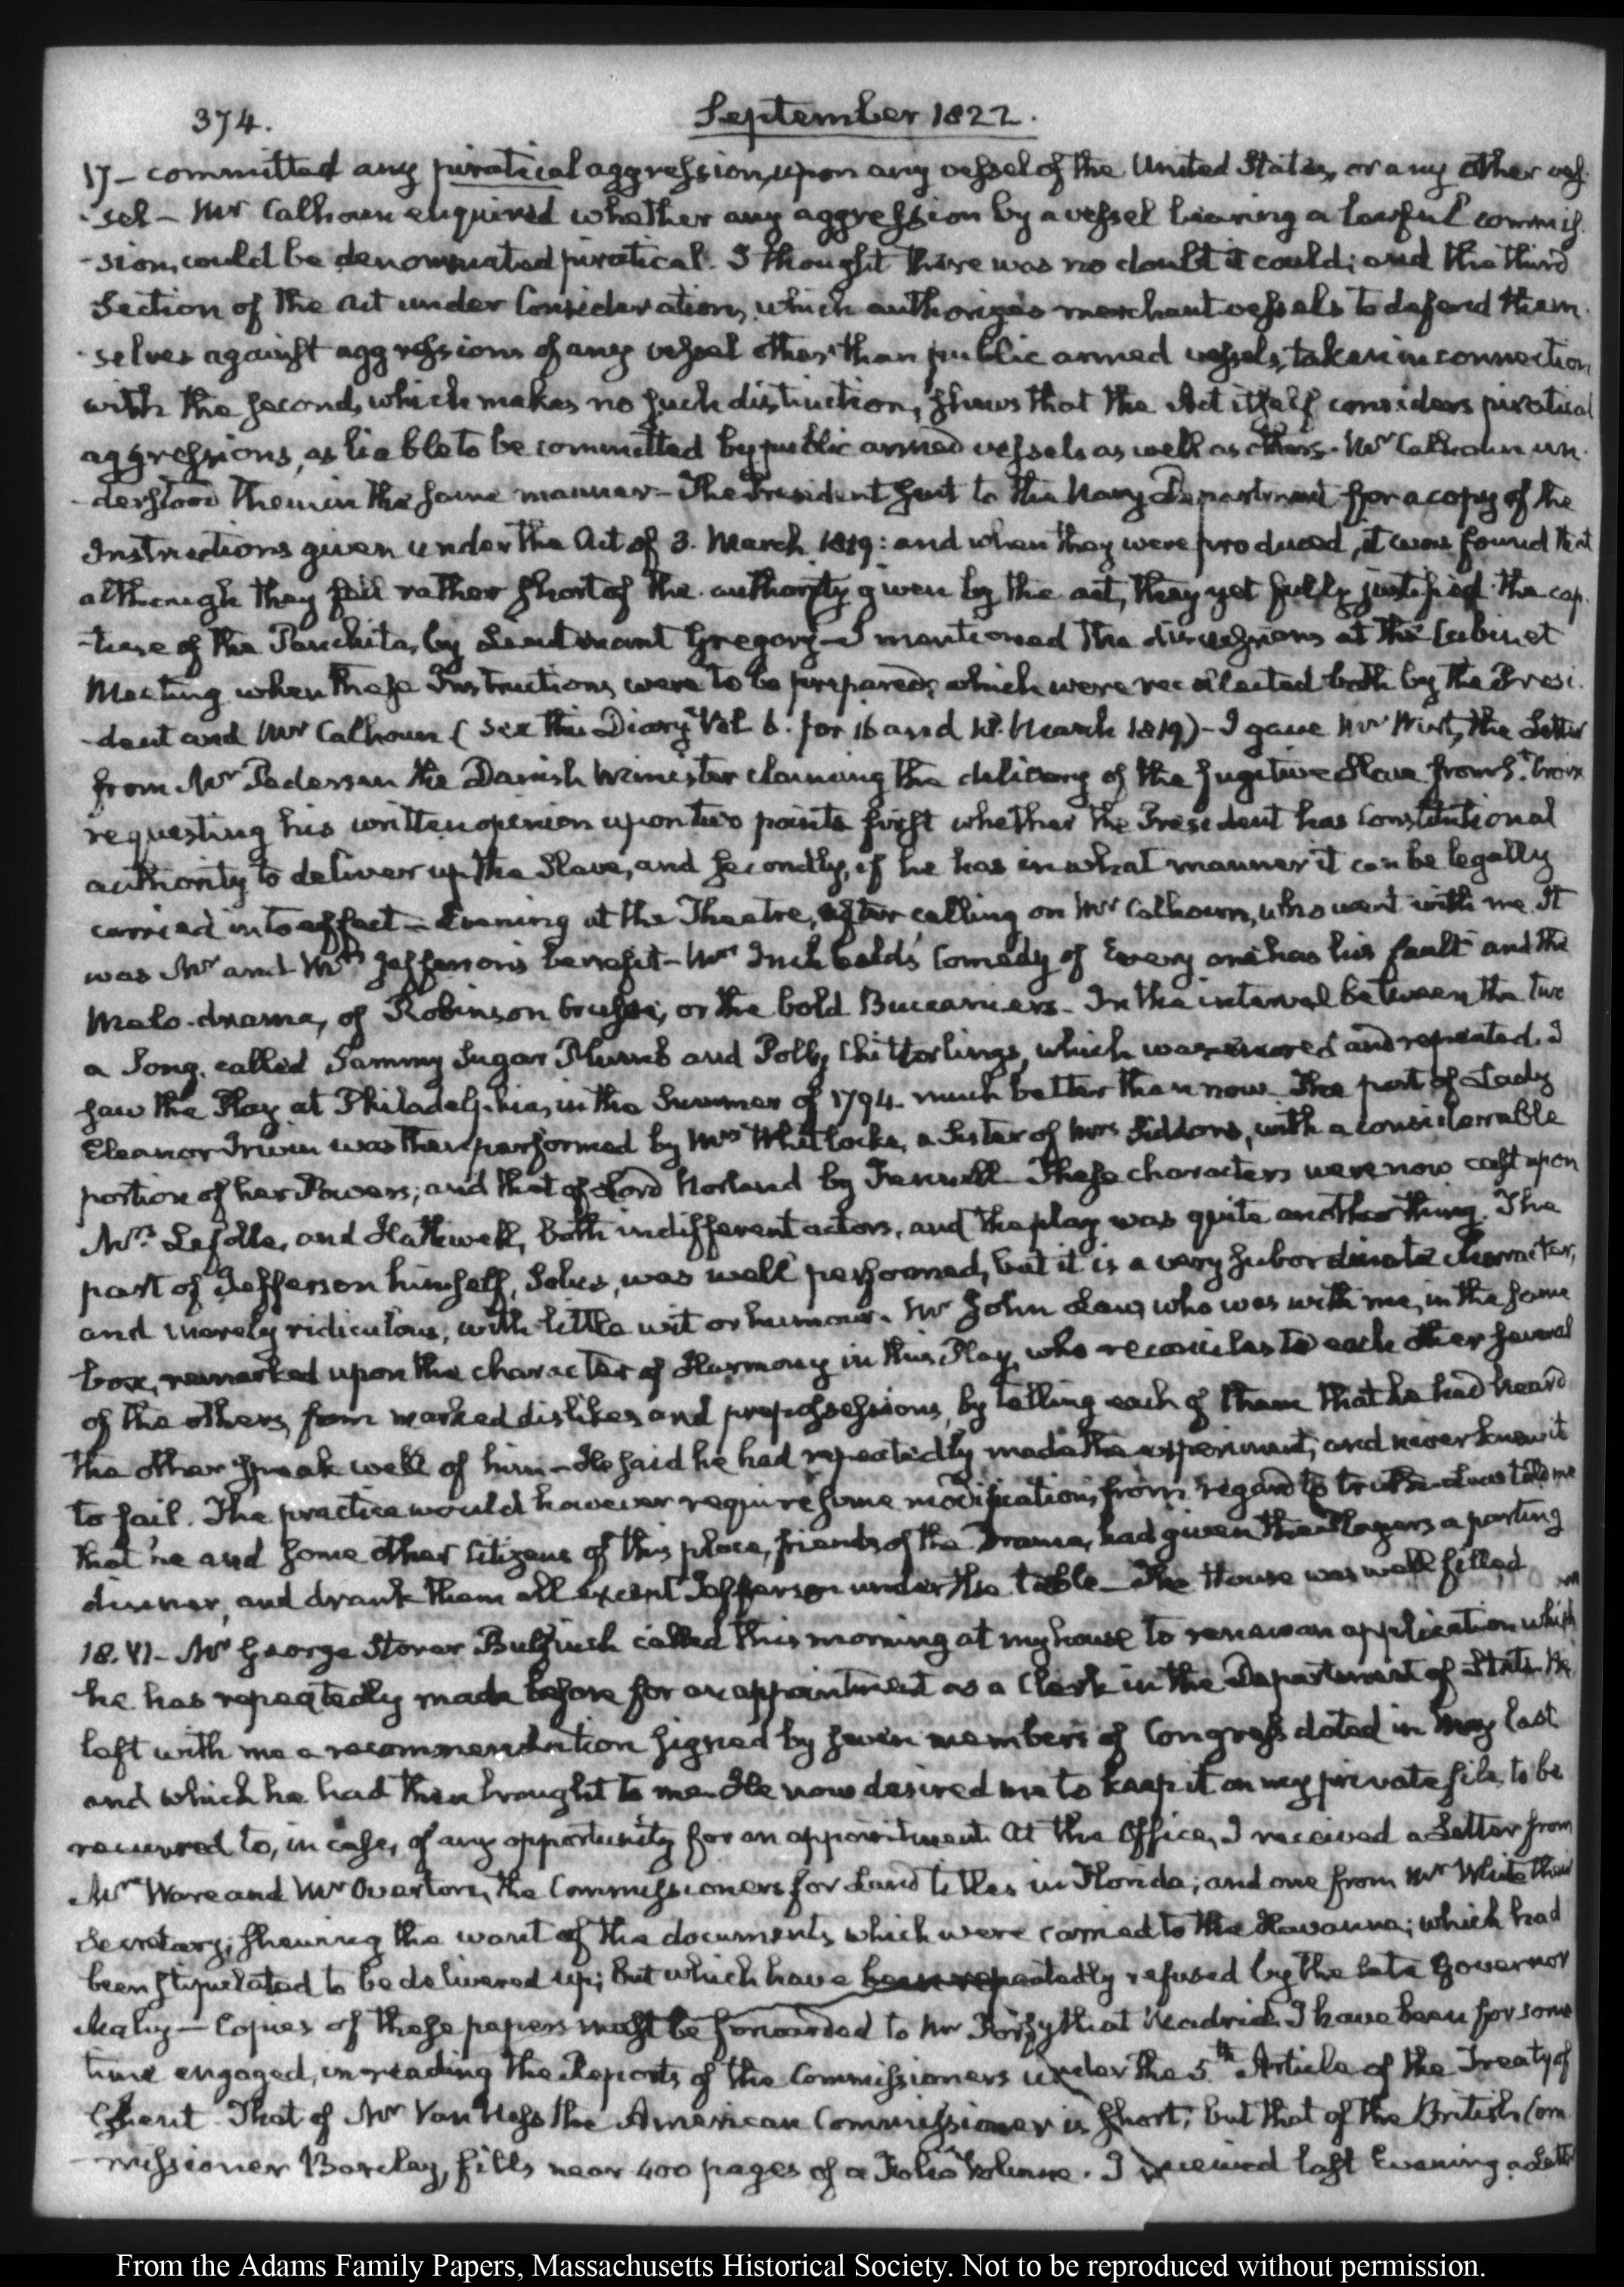 374.
September 1822.
17 - committed any piratical aggression, upon any vessel of the United States, or any other ves-
-sel - Mr Calhoun enquired whether any aggression by a vessel bearing a lawful commis-
-sion, could be denominated piratical. I thought there was no doubt it could; and the third
Section of the Act under Consideration, which authorizes merchant vessels to defend them-
-selves against aggressions of any vessel other than public armed vessels, taken in connection
with the second, which makes no such distinction, shews that the Act itself considers piratical
aggressions, as liable to be committed by public armed vessels as well as others. Mr Calhoun un-
-derstood them in the same manner - The President sent to the Navy Department for a copy of the
Instructions given under the Act of 3. March 1819: and when they were produced, it was found that
although they fell rather short of the authority given by the act, they yet fully justified the cap-
-ture of the Panchita, by Lieutenant Gregory - I mentioned the discussions at the Cabinet
Meeting when these Instructions were to be prepared, which were recollected both by the Presi-
-dent and Mr Calhoun (See this Diary Vol 6. for 16 and March 1819) - I gave Mr Wirt, the Letter
from Mr Pedersen the Danish Minister claiming the delivery of the fugitive Slave from St. Croix
requesting his written opinion upon two points first whether the President has Constitutional
authority to deliver up the Slave, and secondly, if he has in what manner it can be legally
carried into effect - Evening at the Theatre, after calling on Mr Calhoun, who went with me. It
was Mr and Mrs Jefferson's benefit - Mrs Inchbald's Comedy of Every one has his fault and the
Melo-drama, of Robinson Crusoe, or the bold Buccaniers - In the interval between the two
a Song, called Sammy Sugar Plumb and Polly Chitterlings, which was encored and repeated. I
saw the Play at Philadelphia, in the Summer of 1794 - much better than now. The part of Lady
Eleanor Irwin was then performed by Mrs Whitlocke, a Sister of Mrs Siddons, with a considerable
portion of her Powers; and that of Lord Norland by Fennell. These characters were now cast upon
Mrs Lefolle, and Hathwell, both indifferent actors, and the play was quite another thing. The
part of Jefferson himself, Solus, was well performed, but it is a very subordinate character,
and merely ridiculous, with little wit or humour. Mr John Law, who was with me, in the same
box, remarked upon the character of Harmony in this Play, who reconciles to each other several
of the others, from marked dislikes and prepossessions, by telling each of them that he had heard
the other speak well of him - He said he had repeatedly made the experiment, and never knew it
to fail. The practice would however require some modification, from regard to truth. Law told me
that he and some other Citizens of this place, friends of the Drama, had given the Players a parting
dinner, and drank them all except Jefferson under the table - The House was well filled
18. VI - Mr George Storer Bulfinch called this morning at my house to renew an application which
he has repeatedly made before for an appointment as a Clerk in the Department of State. He
left with me a recommendation signed by seven members of Congress dated in May last
and which he had then brought to me - He now desired me to keep it on my private file, to be
recurred to, in case, of any opportunity for an appointment. At the Office, I received a Letter from
Mr Ware and Mr Overton, the Commissioners for Land titles in Florida; and one from Mr White their
Secretary; shewing the want of the documents, which were carried to the Havanna; which had
been stipulated to be delivered up; but which have been repeatedly refused by the late Governor
Mahy - Copies of these papers must be forwarded to Mr Forsyth at Madrid. I have been for some
time engaged, in reading the Reports of the Commissioners under the 5th Article of the Treaty of
Ghent. That of Mr Van Ness the American Commissioner is short; but that of the British Com-
-missioner Barclay, fills near 400 pages of a Folio Volume. I received last Evening a Letter
From the Adams Family Papers, Massachusetts Historical Society. Not to be reproduced without permission.